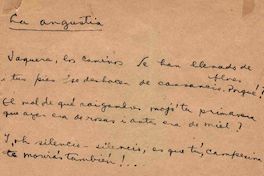 La angustia
Vaquera, los caminos se han llenado de
flores
i tus pies se deshacen de cansancio. Porqué?
El mal de qué raigambre mojó tu primavera
que ayer era de rosas i ante era de miel?
I, oh silencio - silencio, es que tú, campesina
te morirás también!...